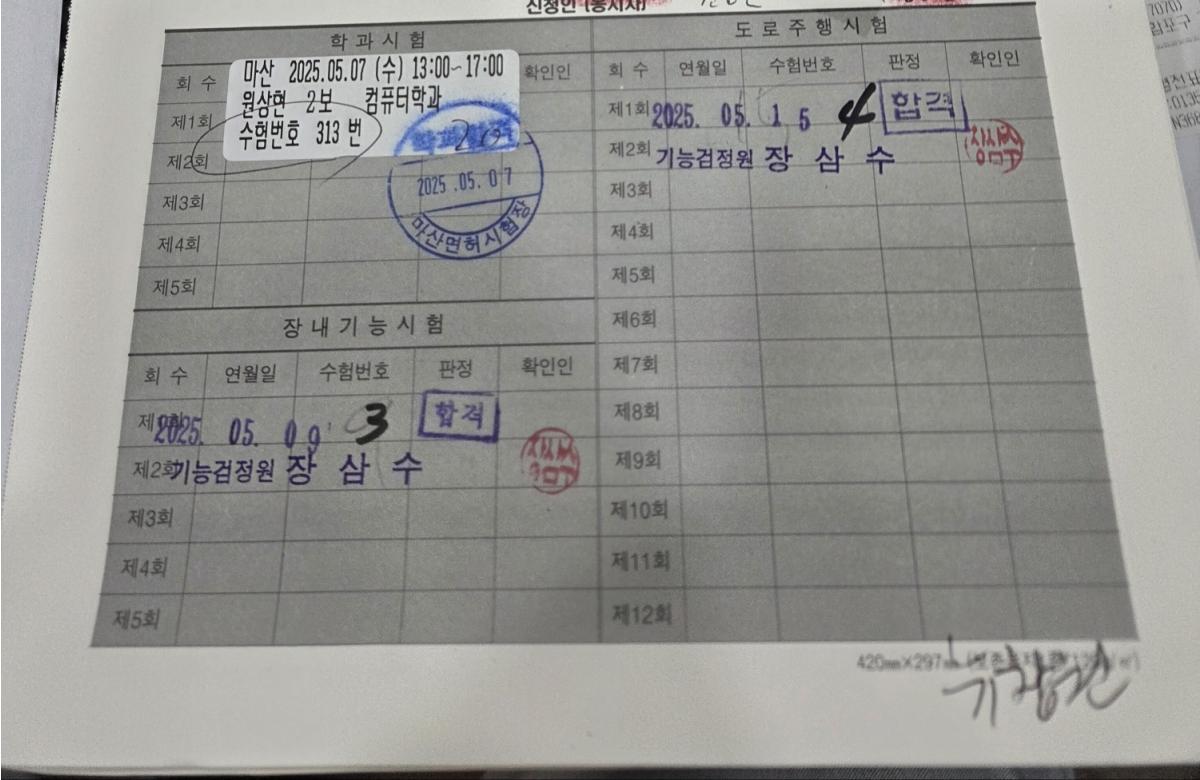 신청인 (응시자)
학 과 시 험
회 수 확인인
마산 2025.05.07 (수) 13:00~17:00
원상현 2보 컴퓨터학과
수험번호 313 번
제1회
제2회
제3회
제4회
제5회
2025.05.07
마산면허시험장
장 내 기 능 시 험
회 수 연월일 수험번호 판정 확인인
2025. 05. 09 3 합격
제2회 기능검정원 장 삼 수
제3회
제4회
제5회
도 로 주 행 시 험
회 수 연월일 수험번호 판정 확인인
제1회 2025. 05. 15 4 합격
제2회 기능검정원 장 삼 수
제3회
제4회
제5회
제6회
제7회
제8회
제9회
제10회
제11회
제12회
420㎜×297㎜